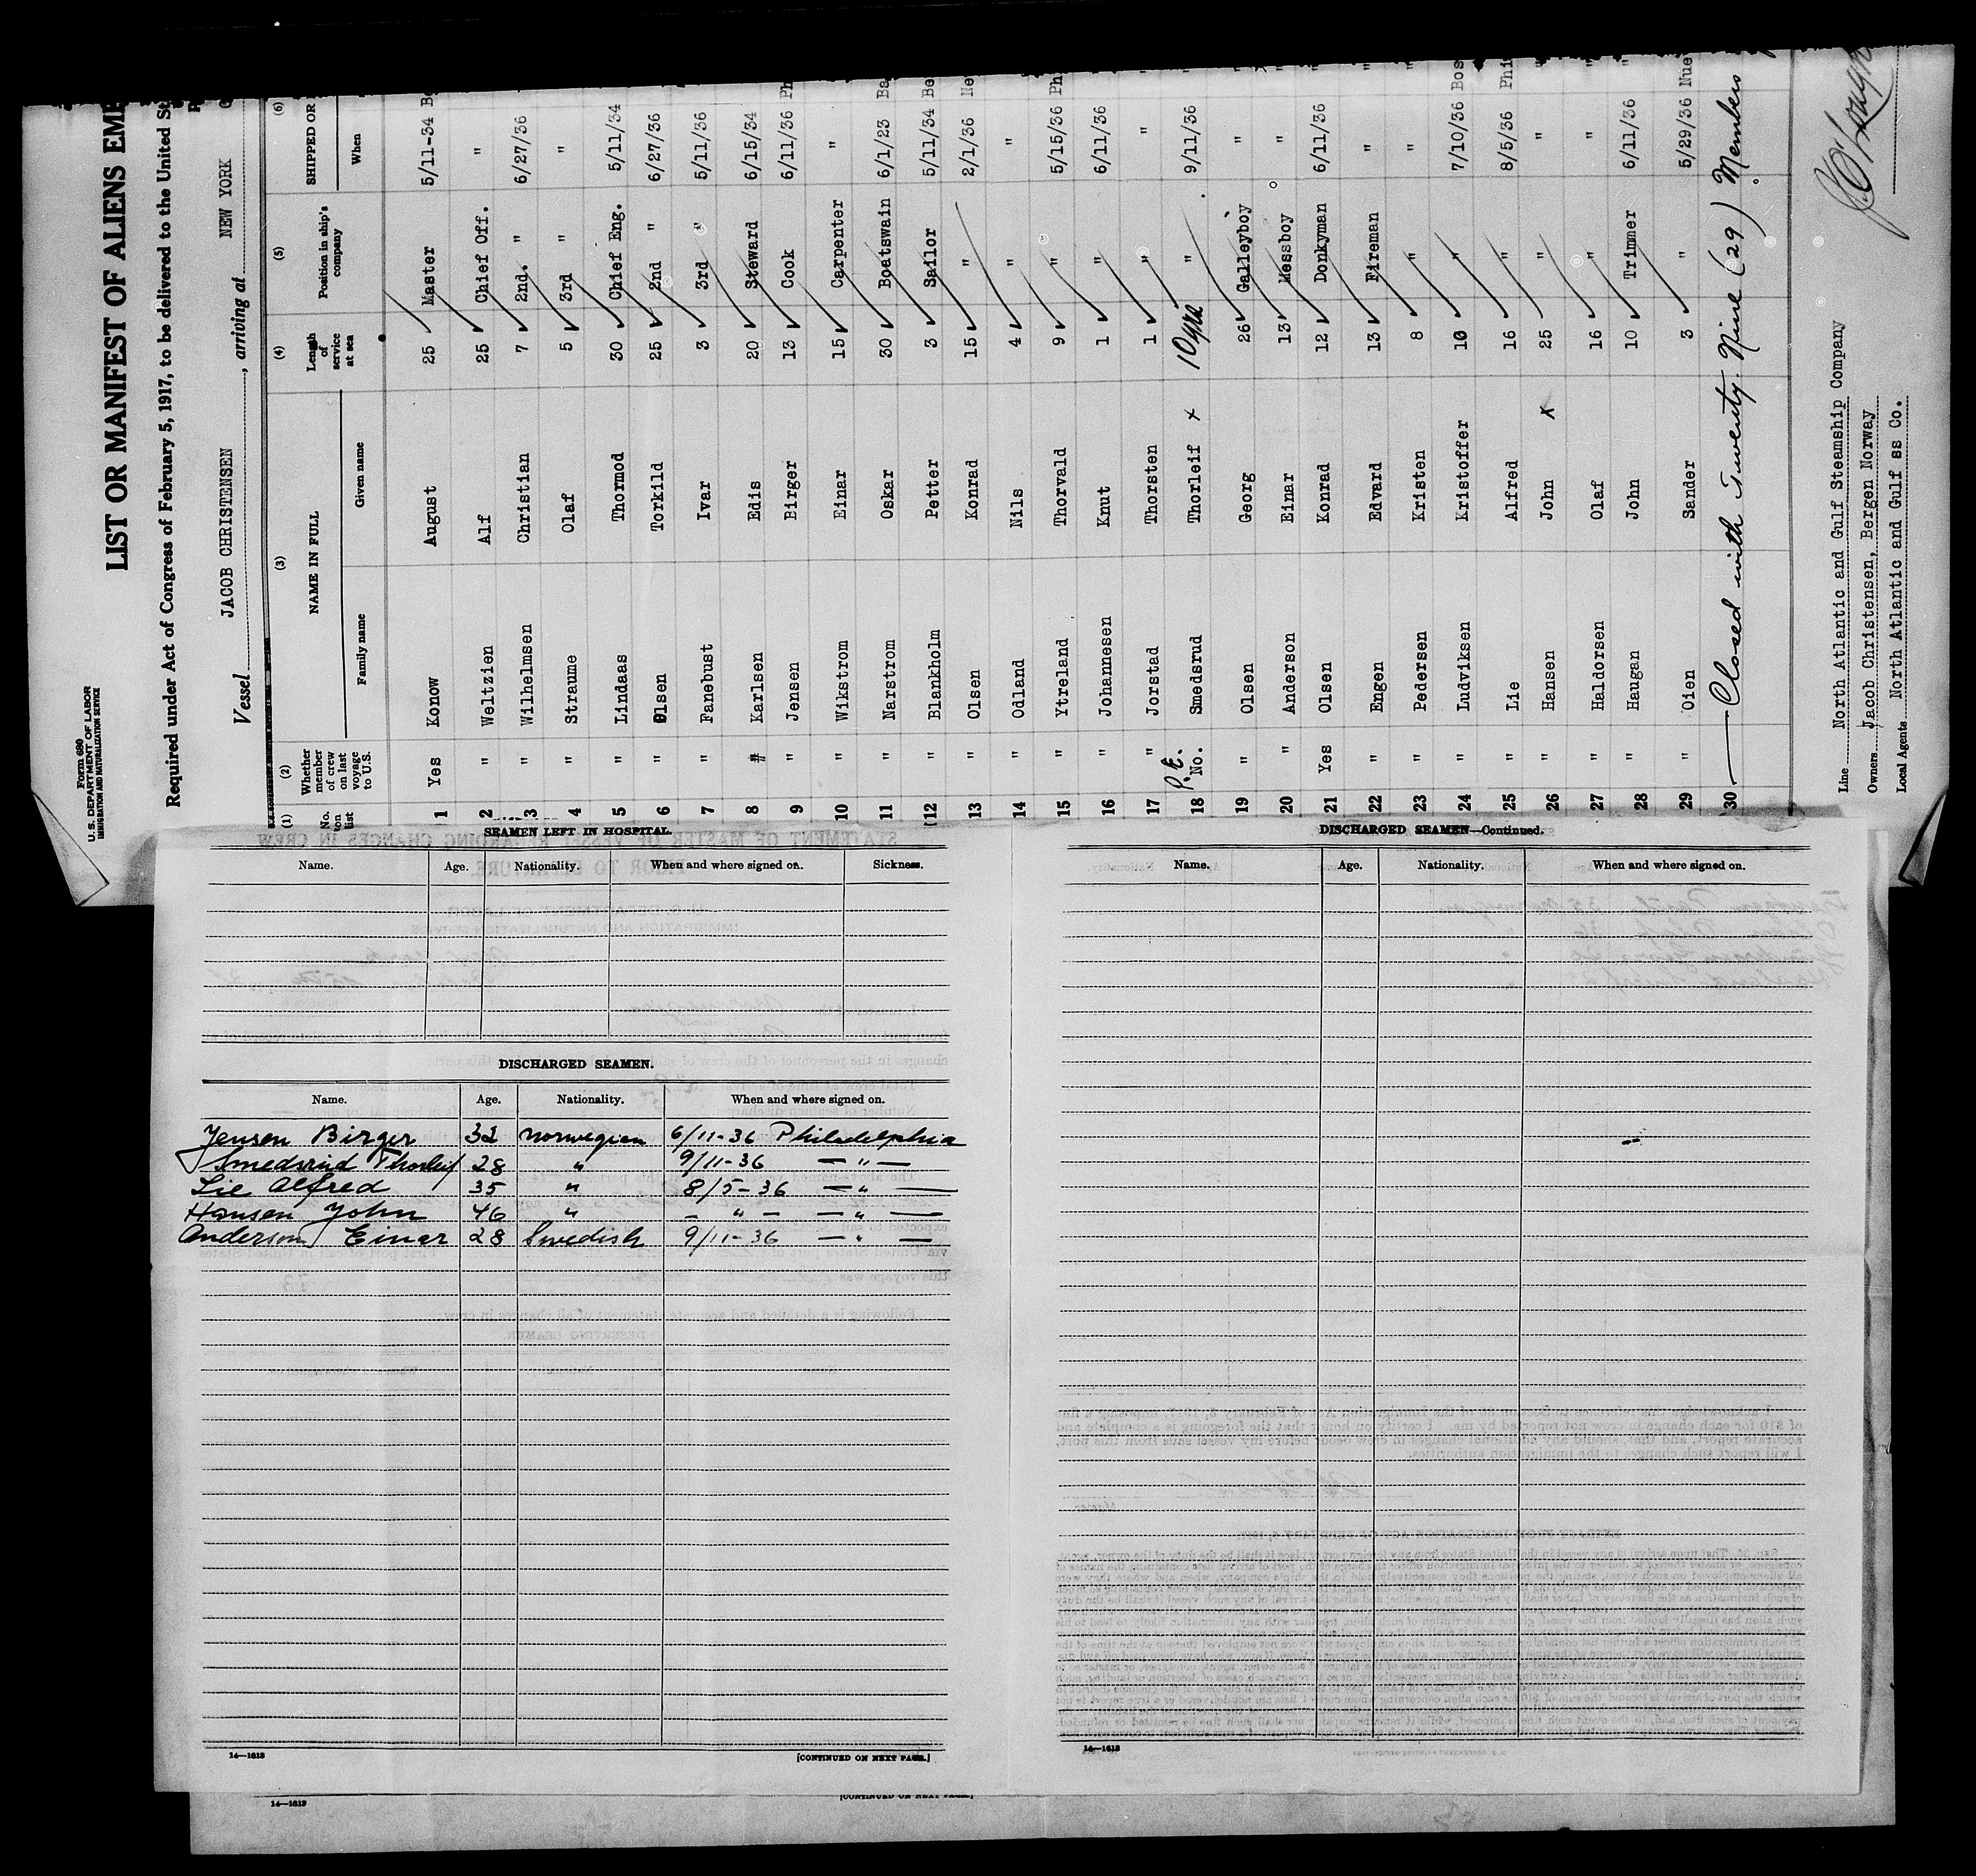 Form 680
U.S. DEPARTMENT OF LABOR
IMMIGRATION AND NATURALIZATION SERVICE
LIST OR MANIFEST OF ALIENS
Required under Act of Congress of February 5, 1917, to be delivered to the United
Vessel JACOB CHRISTENSEN, arriving at NEW YORK
(1) (2) (3) (4) (5) (6)
No. on list Whether member of crew on last voyage to U.S. NAME IN FULL Length of service at sea Position in ship's company SHIPPED OR
Family name Given name When
1 Yes Konow August 25 Master 5/11-34
2 " Weltzien Alf 25 Chief Off. "
3 " Wilhelmsen Christian 7 2nd. " 6/27/36
4 " Straume Olaf 5 3rd " "
5 " Lindaas Thormod 30 Chief Eng. 5/11/34
6 " Olsen Torkild 25 2nd " 6/27/36
7 " Fanebust Ivar 3 3rd " 5/11/36
8 " Karlsen Edis 20 Steward 6/15/34
9 " Jensen Birger 13 Cook 6/11/36 Ph
10 " Wikstrom Einar 15 Carpenter "
11 " Narstrom Oskar 30 Boatswain 6/1/23 Ba
12 " Blankholm Petter 3 Sailor 5/11/34 Be
13 " Olsen Konrad 15 " 2/1/36 Ne
14 " Odland Nils 4 " "
15 " Ytreland Thorvald 9 " 5/15/36 Ph
16 " Johannesen Knut 1 " 6/11/36 "
17 " Jorstad Thorsten 1 " " "
18 P.E. No. Smedsrud Thorleif x 10yrs " 9/11/36 "
19 " Olsen Georg 26 Galleyboy " "
20 " Anderson Einar 13 Messboy " "
21 Yes Olsen Konrad 12 Donkyman 6/11/36 "
22 " Engen Edvard 13 Fireman " "
23 " Pedersen Kristen 8 " " "
24 " Ludviksen Kristoffer 10 " 7/10/36 Bos
25 " Lie Alfred 16 " 8/5/36 Phi
26 " Hansen John x 25 " " "
27 " Haldorsen Olaf 16 " " "
28 " Haugan John 10 Trimmer 6/11/36 "
29 " Oien Sander 3 " 5/29/36 Nue
30 Closed with twenty. Nine (29) Members
Line North Atlantic and Gulf Steamship Company
Owners Jacob Christensen, Bergen Norway
Local Agents North Atlantic and Gulf ss Co.
SEAMEN LEFT IN HOSPITAL.
Name. Age. Nationality. When and where signed on. Sickness.
DISCHARGED SEAMEN.
Name. Age. Nationality. When and where signed on.
Jensen Birger 32 Norwegian 6/11-36 Philadelphia
Smedsrud Thorleif 28 " 9/11-36 — " —
Lie Alfred 35 " 8/5-36 — " —
Hansen John 46 " — " — — " —
Anderson Einar 28 Swedish 9/11-36 — " —
14—1613 [CONTINUED ON NEXT PAGE.]
DISCHARGED SEAMEN—Continued.
Name. Age. Nationality. When and where signed on.
14—1613
14—1613 [CONTINUED ON NEXT PAGE.]